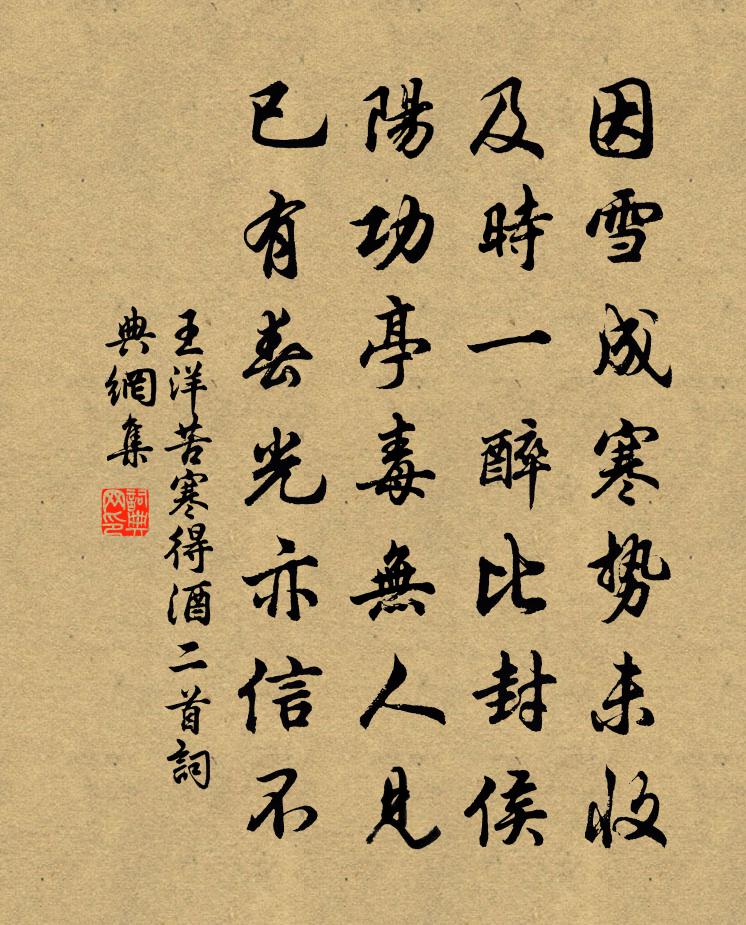 因雪成寒势未收
及時一醉比封侯
陽功亭毒無人見
已有春光亦信不
王洋苦寒得酒二首詞
典網集
詞典網印